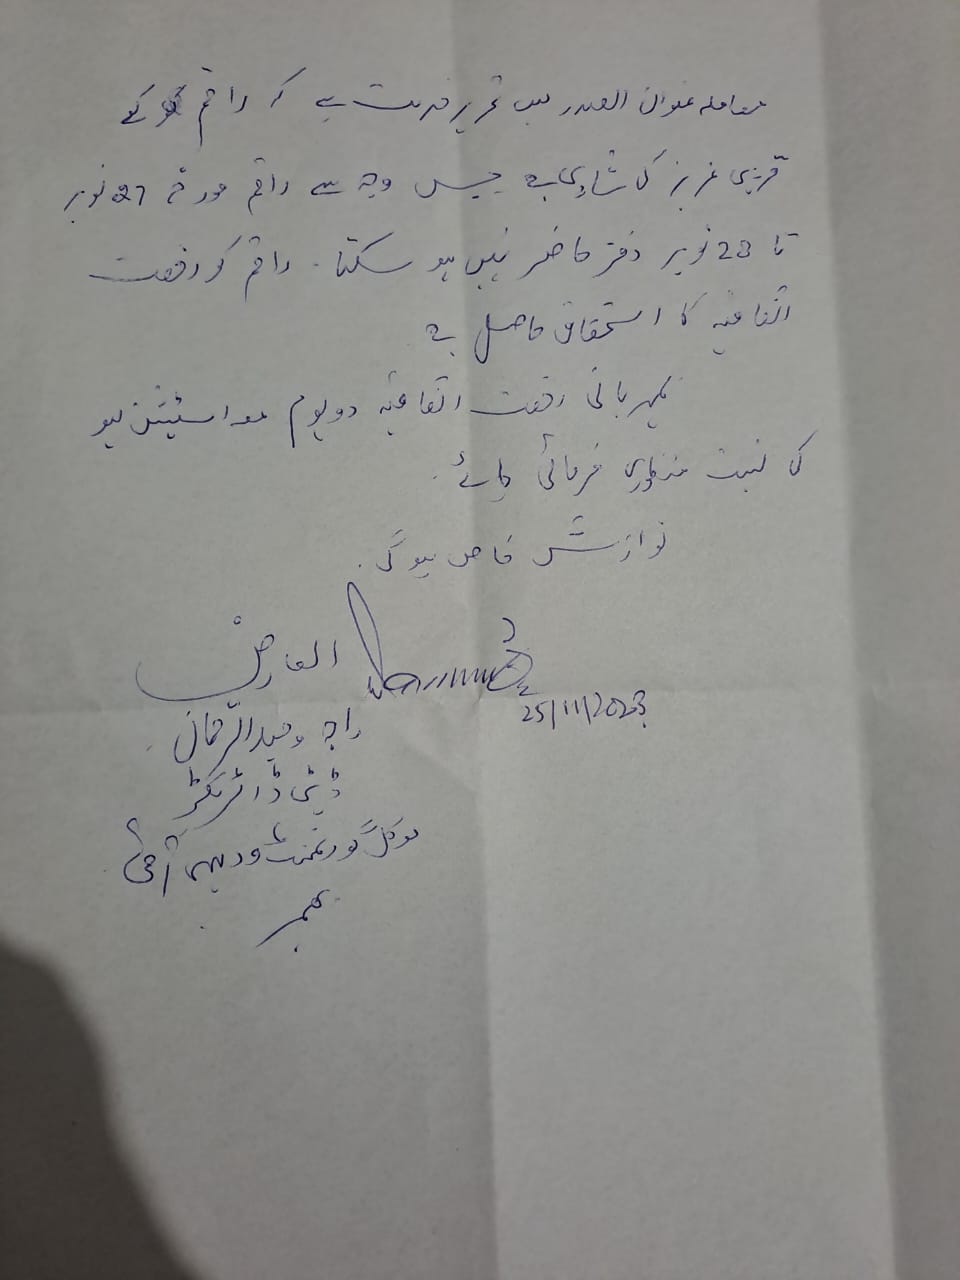 معاملہ عنوان الصدر میں تحریر خدمت ہے کہ راقم کے
قریبی عزیز کی شادی ہے جس وجہ سے راقم مورخہ 27 نومبر
تا 28 نومبر دفتر حاضر نہیں ہو سکتا۔ راقم کو رخصت
اتفاقیہ کا استحقاق حاصل ہے
مہربانی رخصت اتفاقیہ دو یوم معہ اسٹیشن لیو
کی نسبت منظوری فرمائی جائے۔
نوازش خاص ہوگی۔
العارض
25/11/2023
راجہ وحید الرحمان
ڈپٹی ڈائریکٹر
لوکل گورنمنٹ و دیہی ترقی
بھمبر